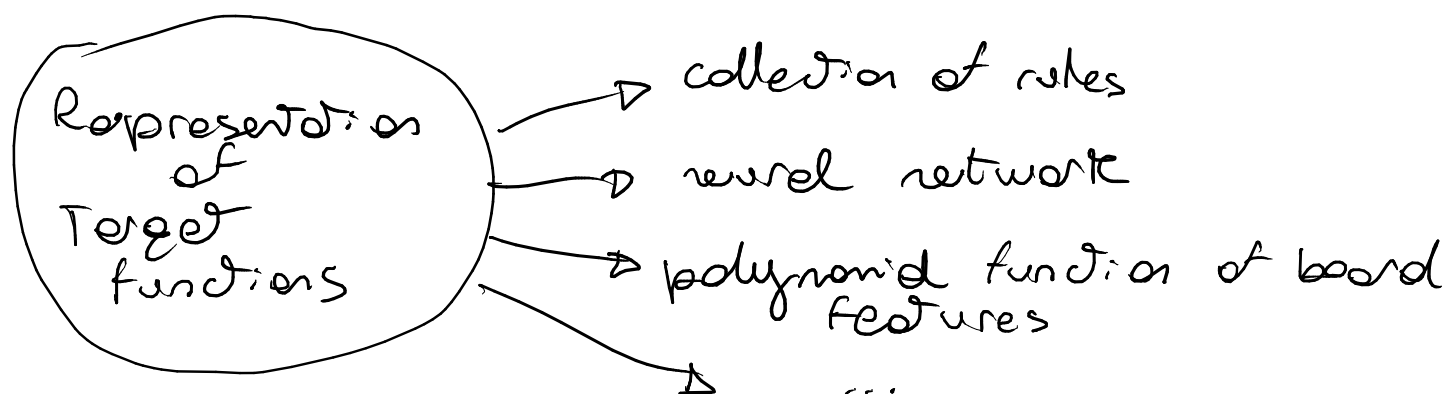 Representation
of
Target
functions
collection of rules
neural network
polynomial function of board
features